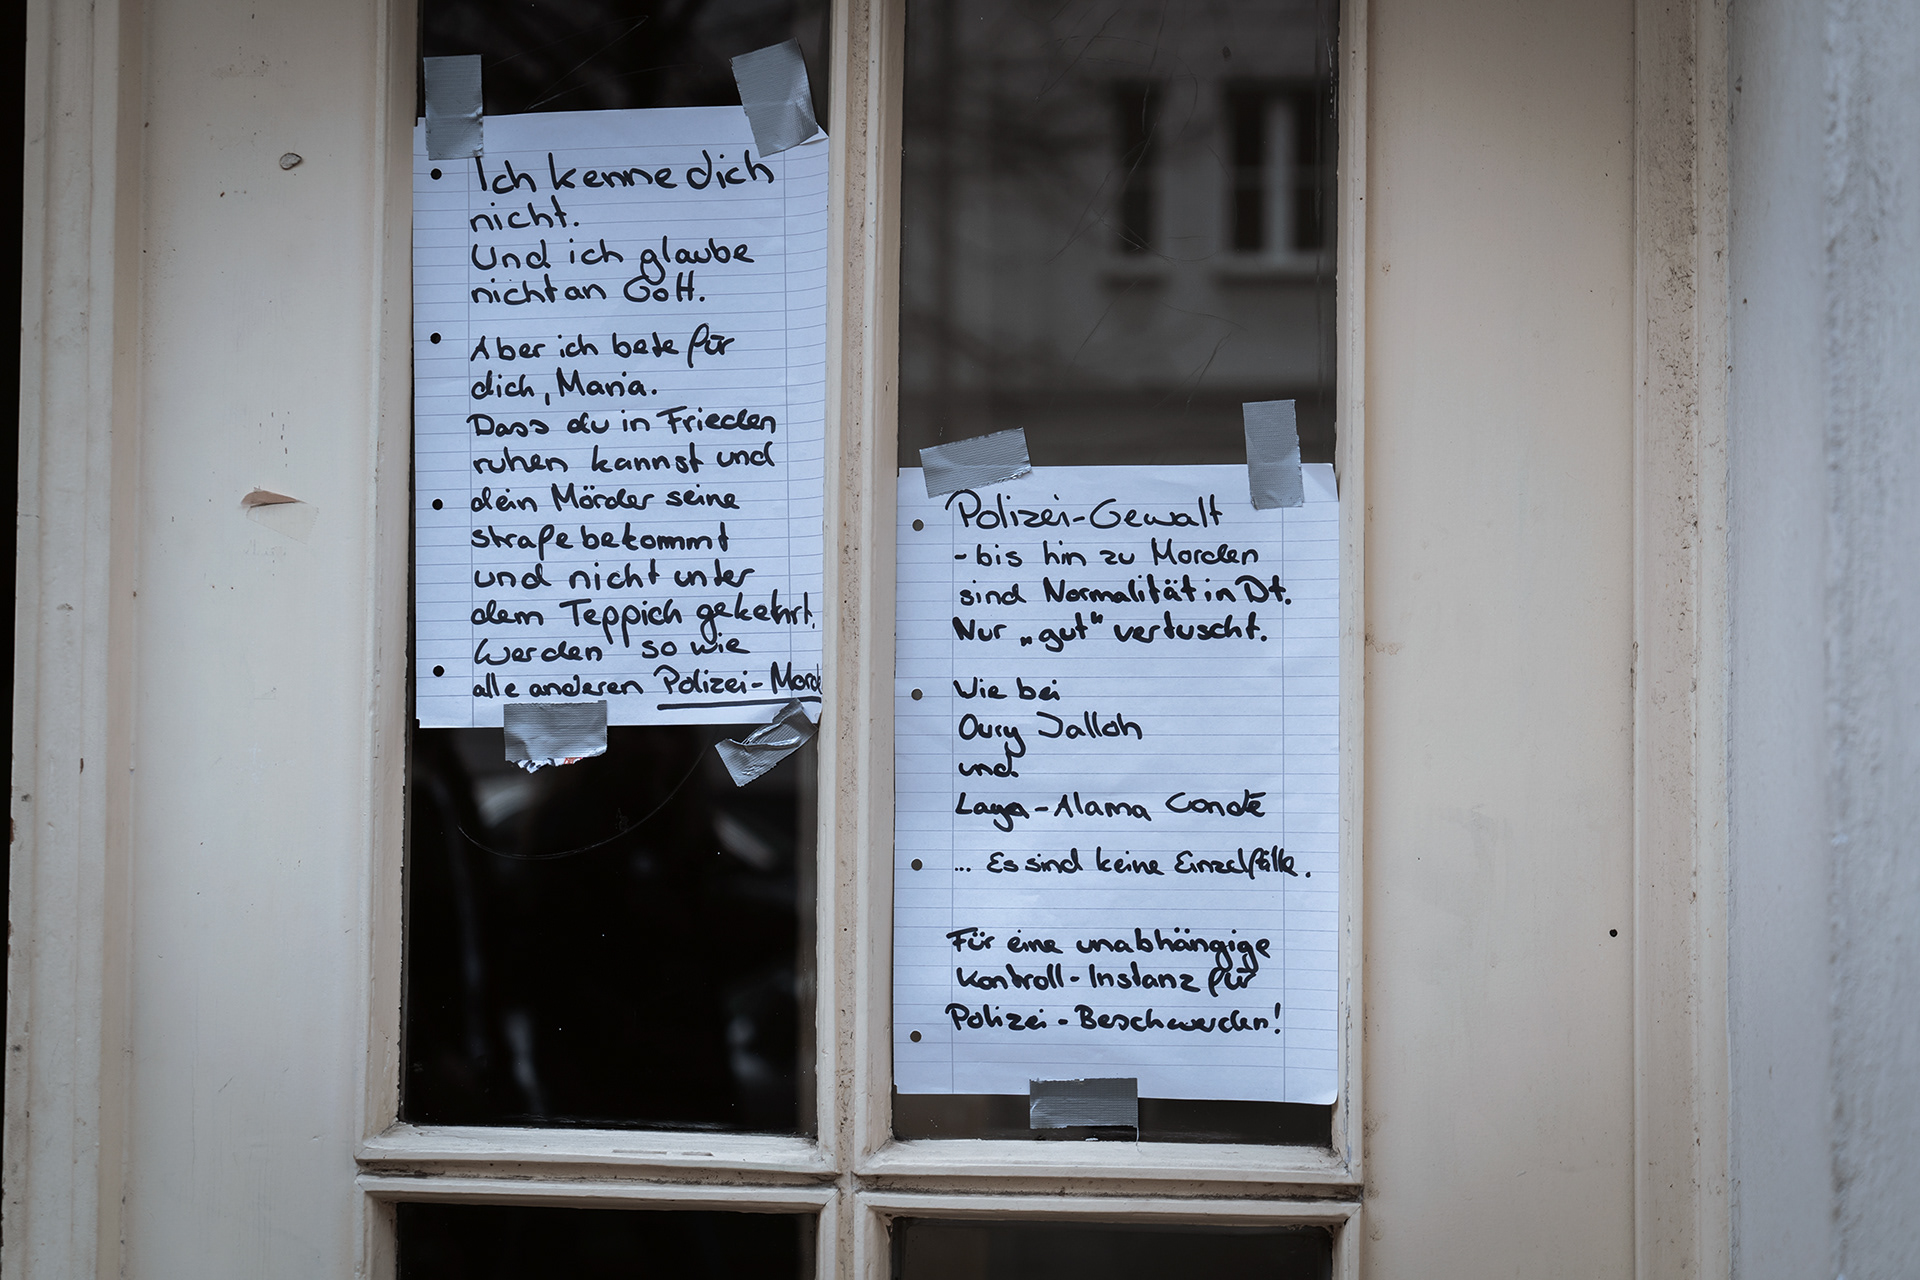 Ich kenne dich
nicht.
Und ich glaube
nicht an Gott.
Aber ich bete für
dich, Maria.
Dass du in Frieden
ruhen kannst und
dein Mörder seine
strafe bekommt
und nicht unter
dem Teppich gekehrt
werden so wie
alle anderen Polizei-Morde
Polizei-Gewalt
- bis hin zu Morden
sind Normalität in Dt.
Nur „gut" vertuscht.
Wie bei
Oury Jalloh
und
Laya-Alama Condé
... Es sind keine Einzelfälle.
Für eine unabhängige
Kontroll-Instanz für
Polizei-Beschwerden!